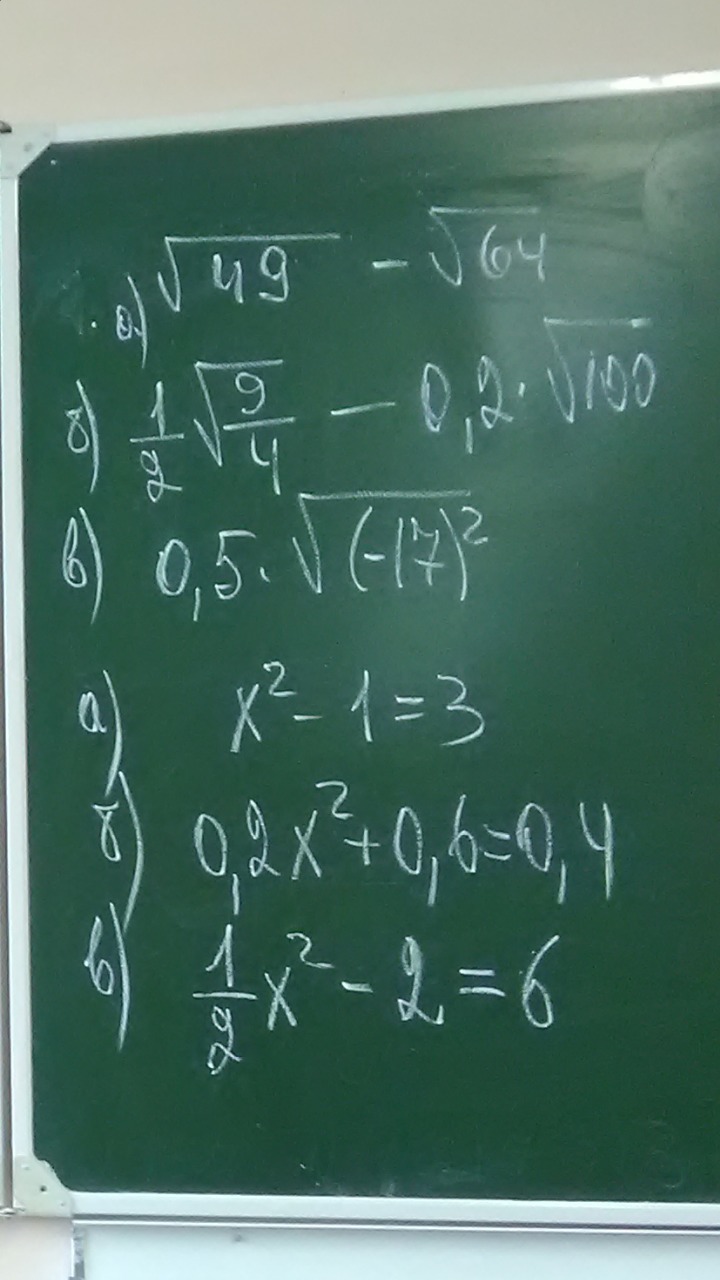 а) √49 - √64
б) 1/2 √9/4 - 0,2·√100
в) 0,5·√(-17)²
а) x² - 1 = 3
б) 0,2x² + 0,6 = 0,4
в) 1/2 x² - 2 = 6